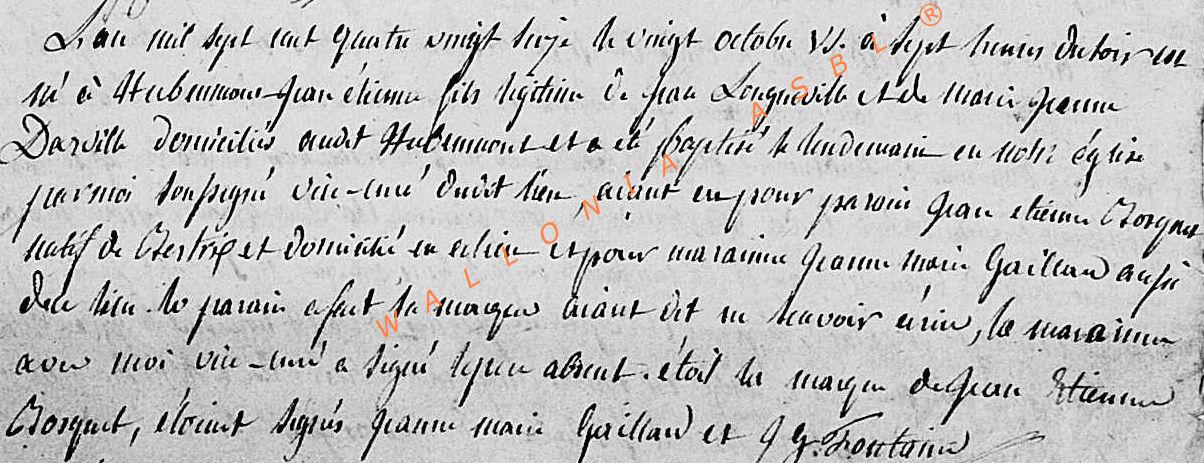 L'an mil sept cent quatre vingt seize le vingt octobre V.S. à sept heures du soir est
né à Hubermont jean étienne fils légitime de jean Longueville et de marie jeanne
Darville domiciliés audit Hubermont et a été Baptisé le lendemain en notre église
par moi soussigné vice-curé dudit lieu, aiant eu pour parain jean etienne Bosquet
natif de Bertrix et domicilié en ce lieu et pour maraine jeanne marie Gaillard aussi
de ce lieu. le parain a fait sa marque aiant dit ne scavoir écrire, la maraine
avec moi vice-curé a signé le pere absent. étoit la marque de jean Etienne
Bosquet, étoient signés jeanne marie Gaillard et J g. Fontaine
WALLONIA ASBL ®